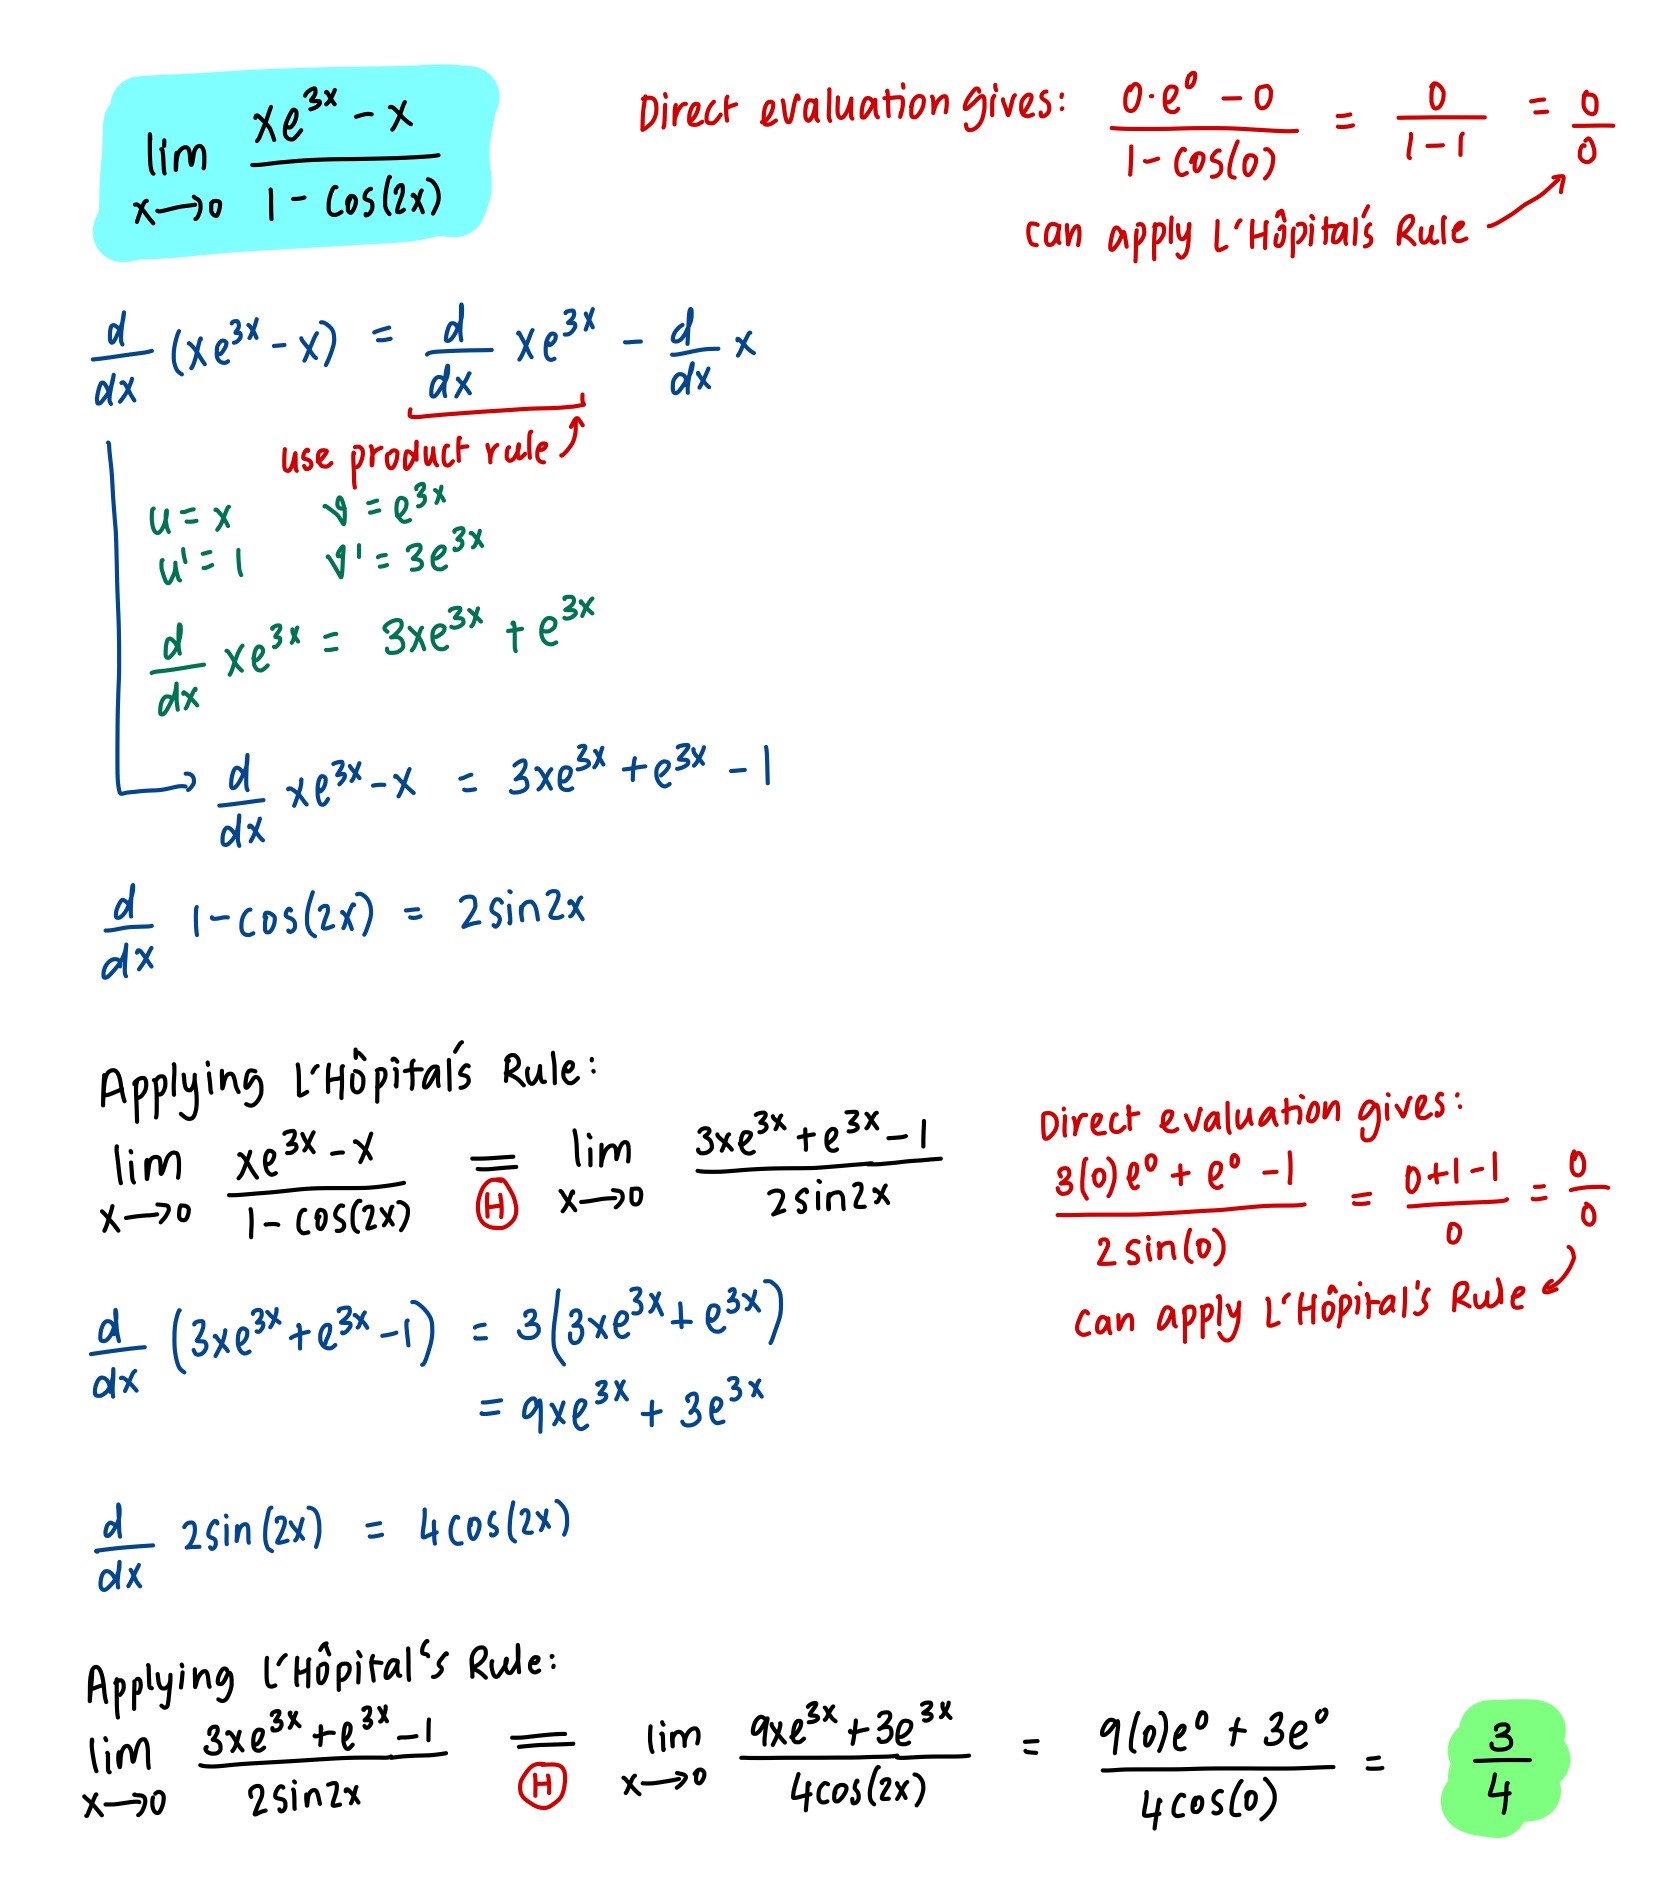 lim x→0 (xe^{3x} − x)/(1 − cos(2x))
Direct evaluation gives: (0·e^0 − 0)/(1 − cos(0)) = 0/(1−1) = 0/0
can apply L'Hôpital's Rule
d/dx (xe^{3x} − x) = d/dx xe^{3x} − d/dx x
use product rule
u = x v = e^{3x}
u' = 1 v' = 3e^{3x}
d/dx xe^{3x} = 3xe^{3x} + e^{3x}
d/dx xe^{3x} − x = 3xe^{3x} + e^{3x} − 1
d/dx 1 − cos(2x) = 2sin2x
Applying L'Hôpital's Rule:
lim x→0 (xe^{3x} − x)/(1 − cos(2x)) = Ⓗ lim x→0 (3xe^{3x} + e^{3x} − 1)/(2sin2x)
Direct evaluation gives:
(3(0)e^0 + e^0 − 1)/(2sin(0)) = (0+1−1)/0 = 0/0
can apply L'Hôpital's Rule
d/dx (3xe^{3x} + e^{3x} − 1) = 3(3xe^{3x} + e^{3x})
= 9xe^{3x} + 3e^{3x}
d/dx 2sin(2x) = 4cos(2x)
Applying L'Hôpital's Rule:
lim x→0 (3xe^{3x} + e^{3x} − 1)/(2sin2x) = Ⓗ lim x→0 (9xe^{3x} + 3e^{3x})/(4cos(2x)) = (9(0)e^0 + 3e^0)/(4cos(0)) = 3/4